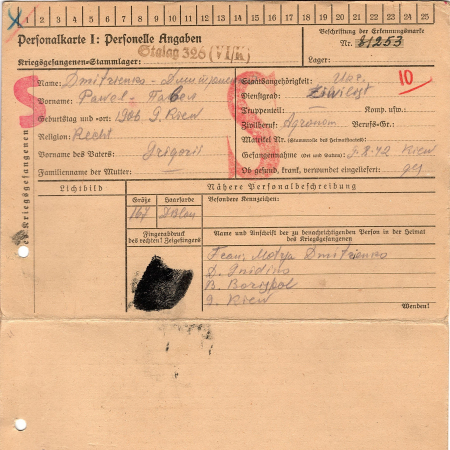 1 2 3 4 5 6 7 8 9 10 11 12 13 14 15 16 17 18 19 20 21 22 23 24 25
Personalkarte I: Personelle Angaben
Beschriftung der Erkennungsmarke
Stalag 326 (VI/K)
Nr. 81253
Kriegsgefangenen-Stammlager:
Lager:
Name: Dmitrienko - Дмитриенко
Staatsangehörigkeit:
10
Vorname: Pawel - Павел
Dienstgrad: Zivilist
Geburtstag und -ort: 1906 G. Kiew
Truppenteil: Komp. usw.:
Religion: Recht
Zivilberuf: Agronom Berufs-Gr.:
Matrikel Nr. (Stammrolle des Heimatstaates):
Vorname des Vaters: Grigorij
Gefangennahme (Ort und Datum): 8.42 Kiew
Familienname der Mutter:
Ob gesund, krank, verwundet eingeliefert: ges
S
S
Lichtbild
Nähere Personalbeschreibung
Größe
Haarfarbe
Besondere Kennzeichen:
167
Fingerabdruck
des rechten! Zeigefingers
Name und Anschrift der zu benachrichtigenden Person in der Heimat
des Kriegsgefangenen
Frau: Motja Dmitrienko
D. Gnidins
B. Borispol
G. Kiew
Wenden!